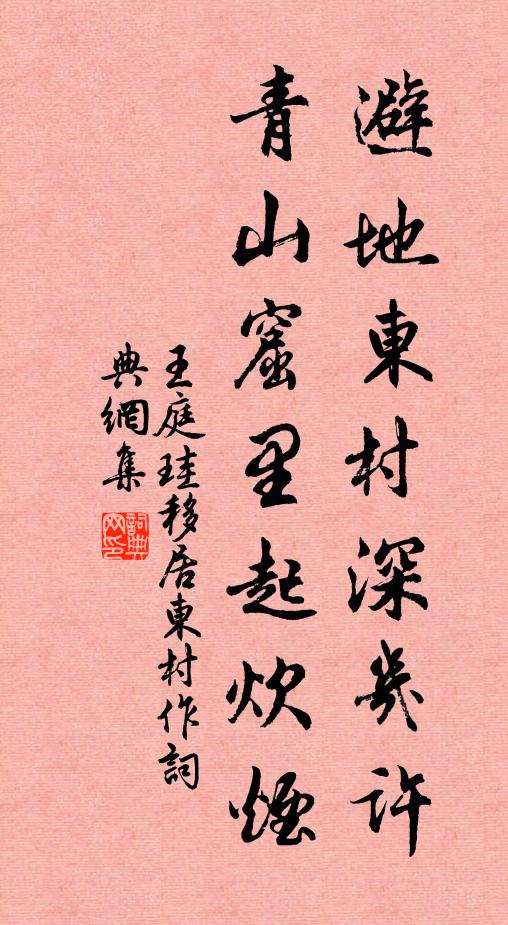 避地東村深幾許
青山窟里起炊煙
王庭珪移居東村作詞
典網集
詞典網印